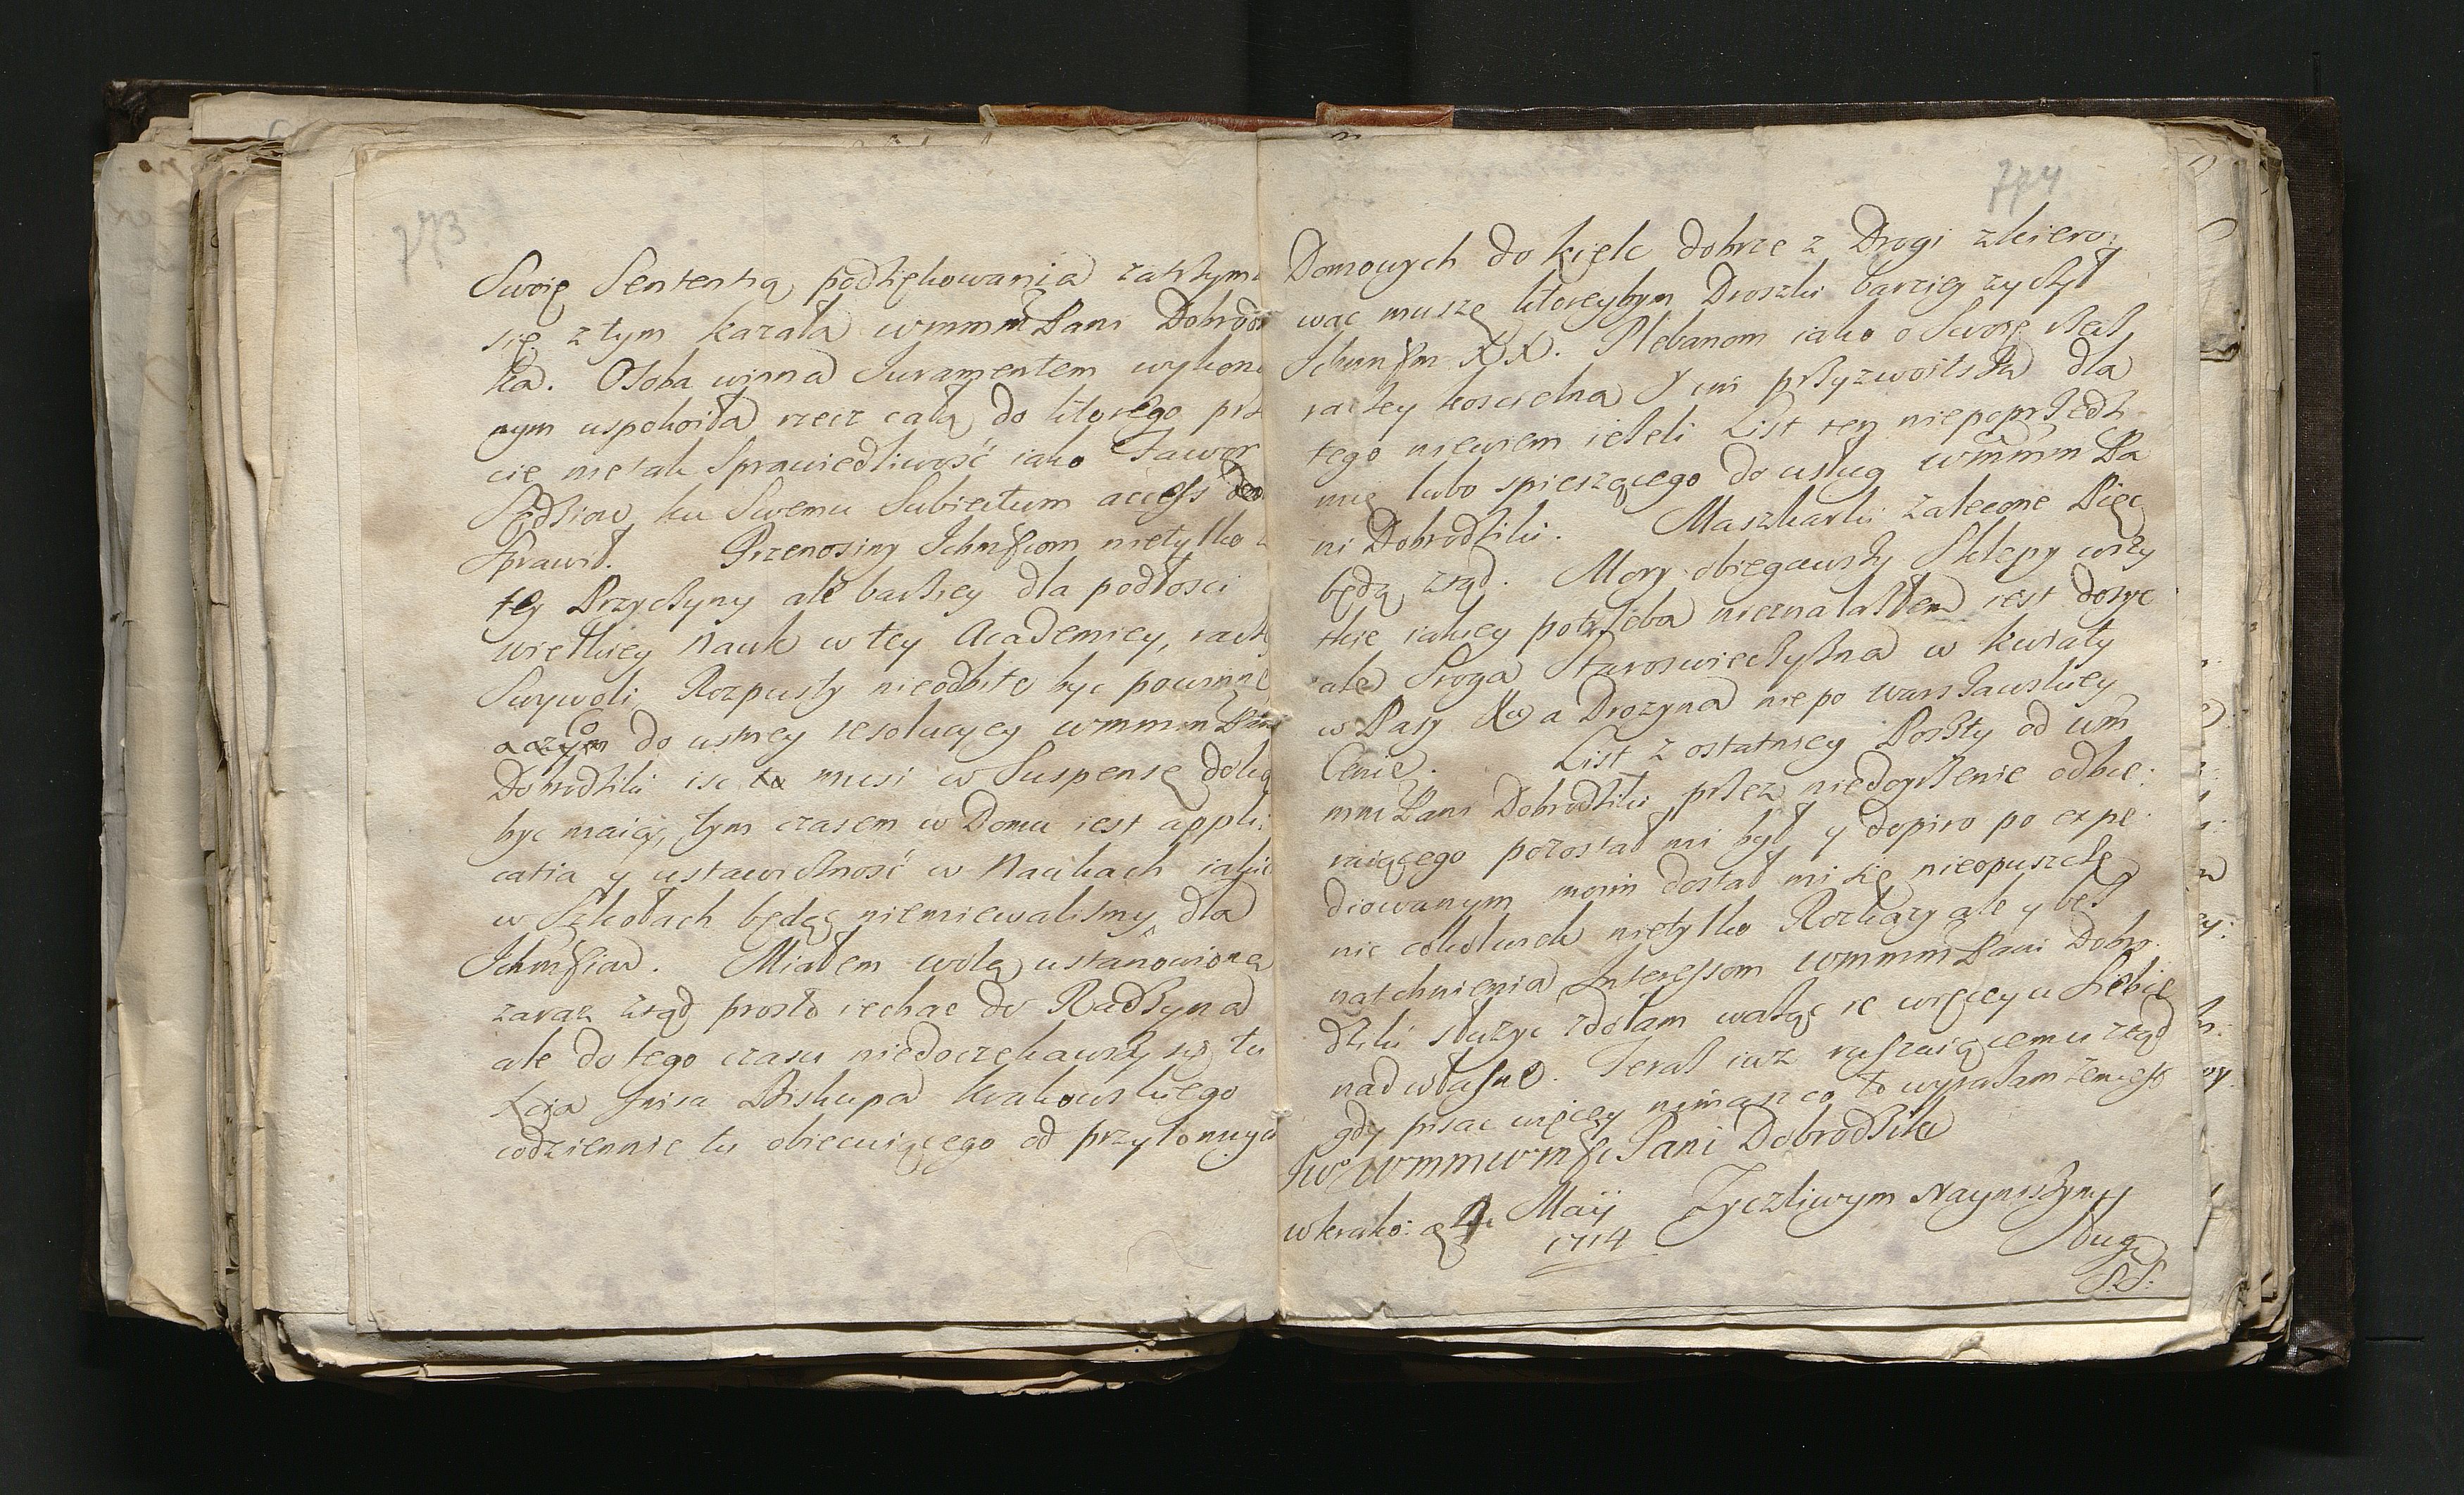 773
Swoię Sententią podziękowania zatrzyma
się z tym kazała wmmm Pani Dobrodzi
ka. Osoba winna Iuramentem wykona
nym uspokoiła rzecz całą do ktorego prz
cie nie tak Sprawiedliwość iako Fawor
Sędziow ku Swemu Subiectum access
Sprawił. Przenosiny Ichmsciom nietylko
tey Przyczyny ale barziey dla podłosci
wielkiey Nauk w tey Academiey,
Swywoli, Rozpusty nieodbite byc powinne
o czym do ustney resolucyey wmmm Pani
Dobrodziki isc musi w Suspensę
byc maią, tym czasem w Domu iest appli
catia y ustawiczność w Naukach iakie
w Szkołach będąc niemiewalismy dla
Ichmsciow. Miałem wolą ustanowioną
zaraz ztąd prosto iechac do Radzyna
ale do tego czasu niedoczekawszy się tu
Xcia Jmsci Biskupa Krakowskiego
codziennie tu obiecuiącego od przytomnych
774
Domowych do Kielc dobrze z Drogi zkiero:
wac muszę ktoreybym Droszki barziey zyczył
Ichmsciom XX. Plebanom iako o Swoię
koscielna y im przyzwoitsza dla
tego niewiem ieżeli List ten niepoprzedzi
mię lubo spieszącego do usług wmmm Pa
ni Dobrodziki. Maszkarki zalecone Pięc
będą ztąd. Mory obiegawszy Sklepy wszy
tkie iakiey potrzeba nieznalazłem iest dosyc
ale Sroga Staroswiecczyzna w kwiaty
w Pasy a Drozyna nie po Warszawskiey
Cenie. List z ostatniey Poszty od wm
mm Pani Dobrodziki przez niedoyrzenie odbie:
raiącego pozostał mi był y dopiro po expe:
diowanym moim dostał mi się nieopuszczę
nic cokolwiek nietylko Rozkazy ale y bez
natchnienia Interessom wmmm Pani Dobro:
dziki słuzyc zdołam ważąc ie więcey u Siebie
nad własne. Teraz iuz ruszaiącemu ztąd
gdy pisac więcey niemasz co to wyrażam żem iest
wmmmwmsci Pani Dobrodzika
w krako: Maij Zyczliwym Nayniszym
1714
Sługą
S.S.